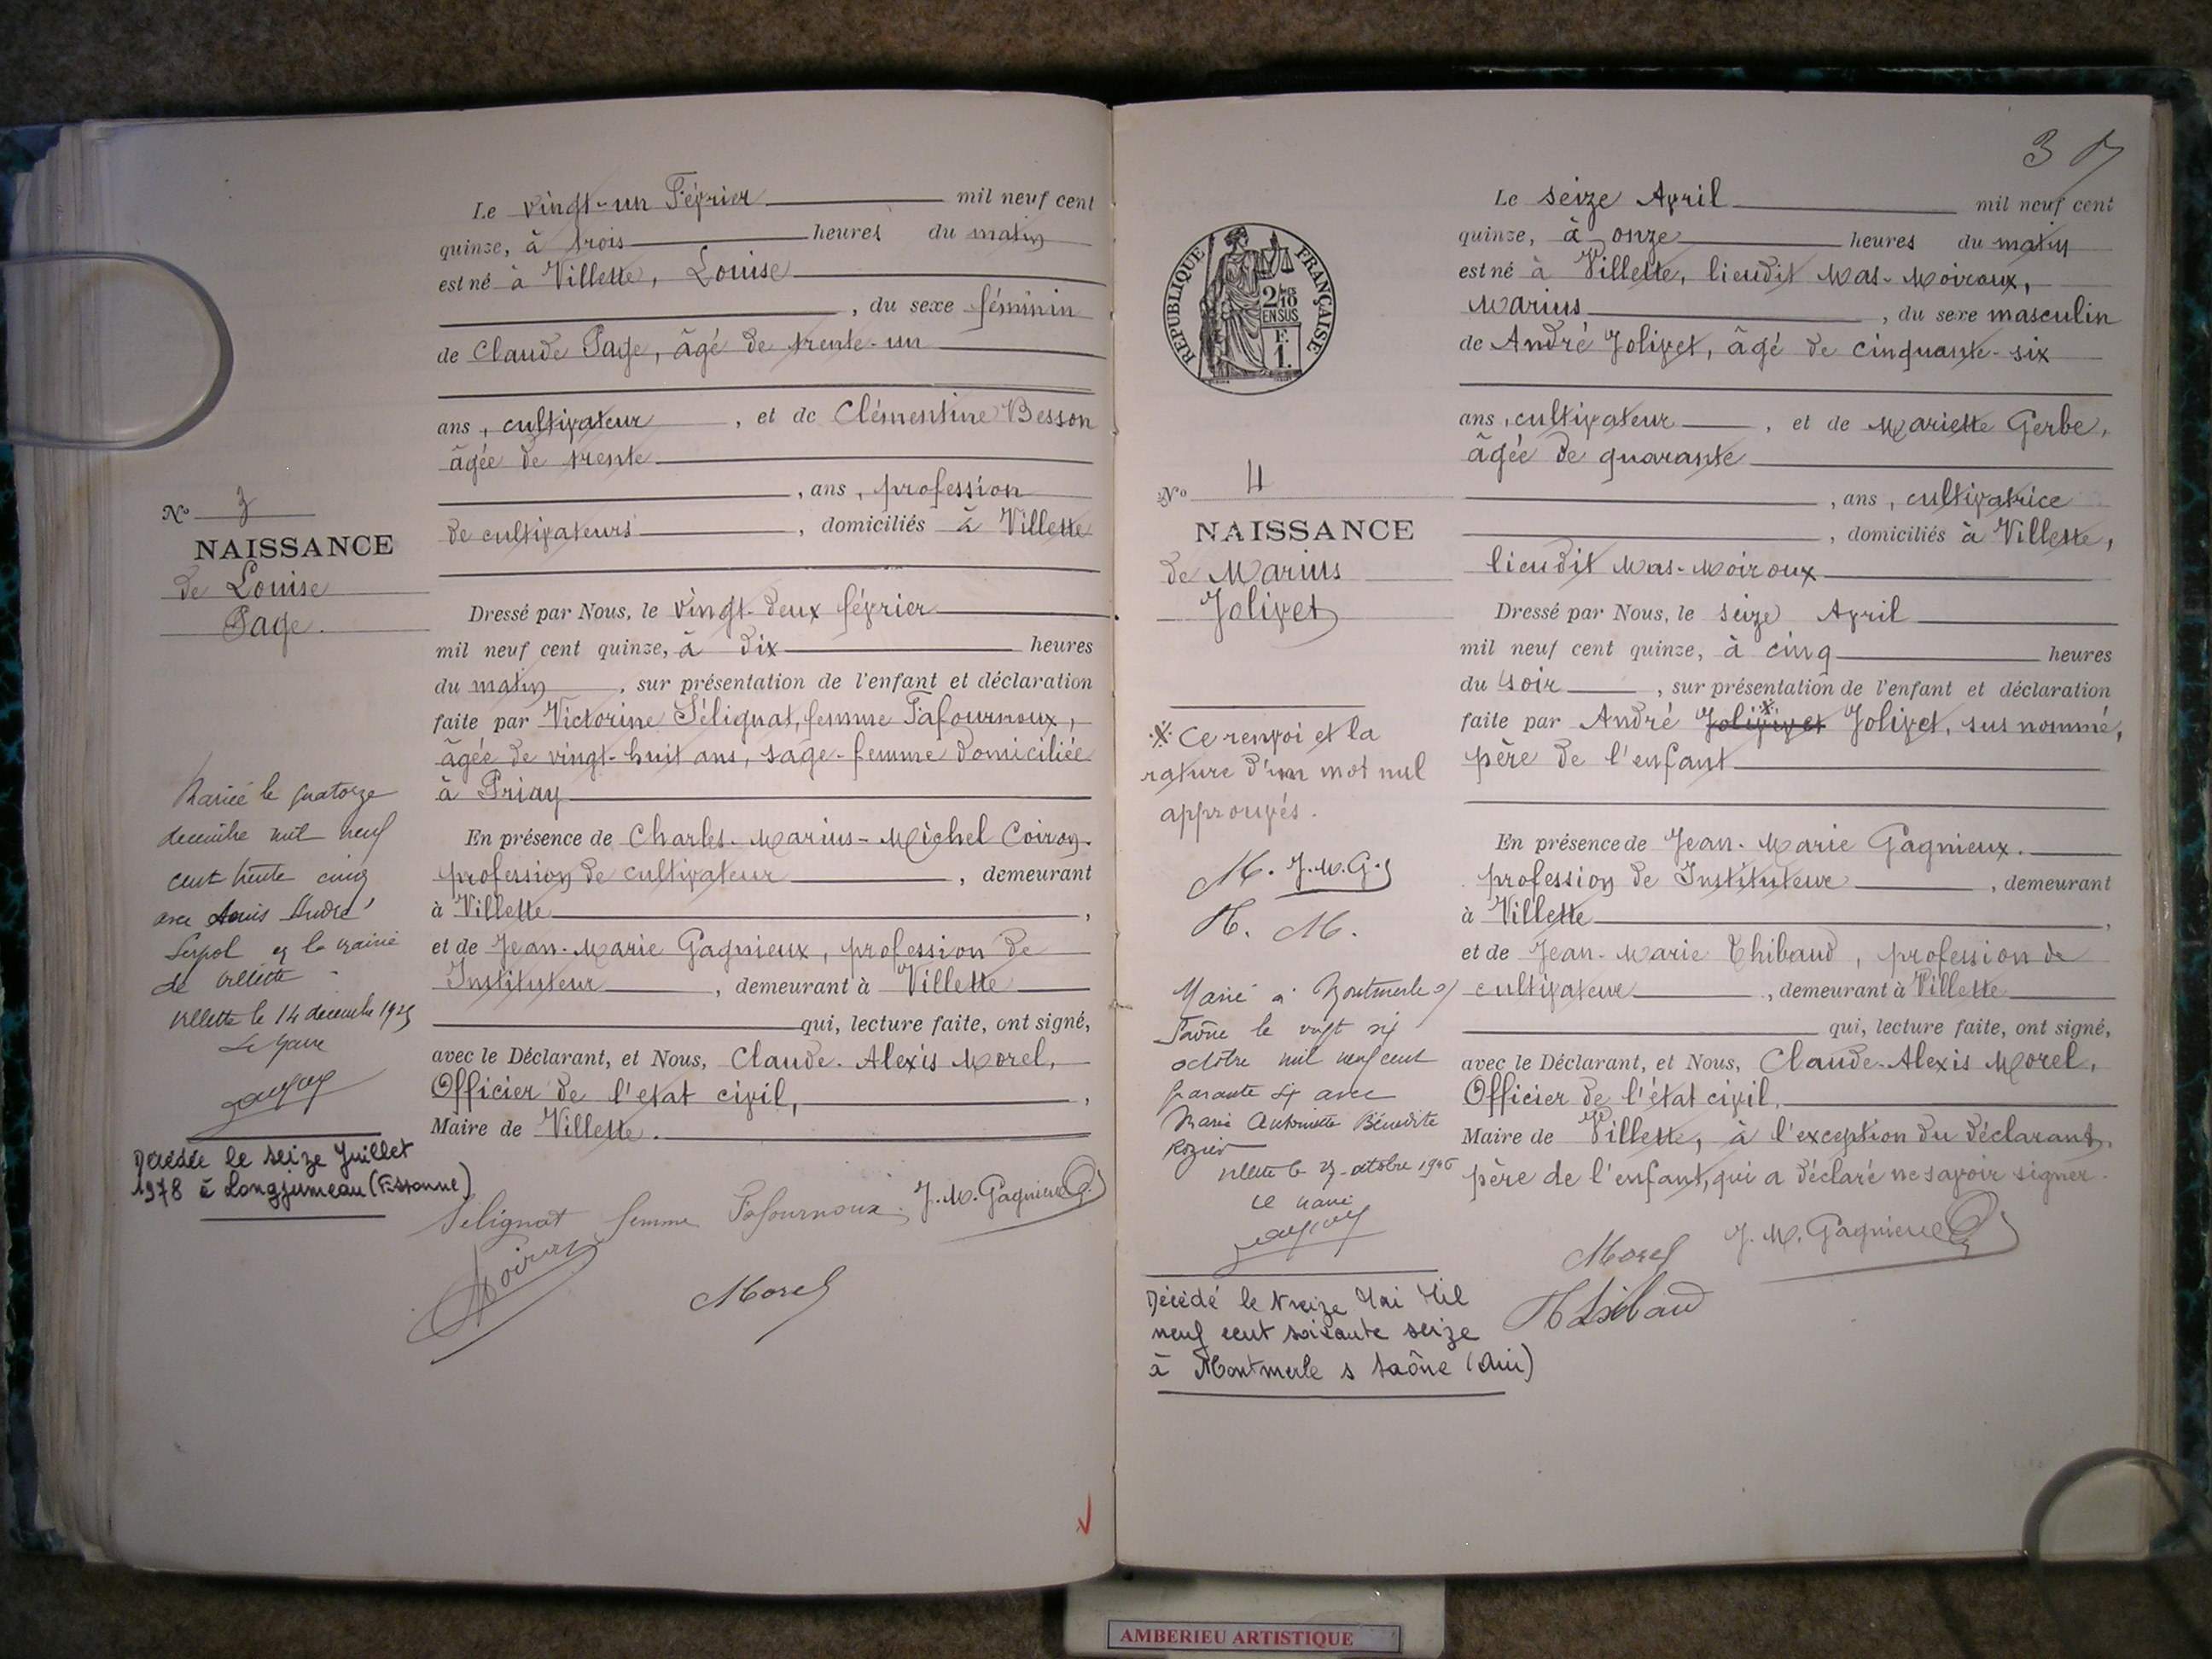 Le vingt-un Février mil neuf cent
quinze, à trois heures du matin
est né à Villette, Louise
, du sexe féminin
de Claude Page, âgé de trente-un
ans, cultivateur, et de Clémentine Besson
âgée de trente
, ans, profession
de cultivateurs, domiciliés à Villette
No 3
NAISSANCE
de Louise
Page.
Dressé par Nous, le vingt-deux février
mil neuf cent quinze, à dix heures
du matin, sur présentation de l'enfant et déclaration
faite par Victorine Sélignat, femme Tafournoux,
âgée de vingt-huit ans, sage-femme domiciliée
à Priay
En présence de Charles-Marius-Michel Coiron.
profession de cultivateur, demeurant
à Villette,
et de Jean-Marie Gagnieux, profession de
Instituteur, demeurant à Villette
qui, lecture faite, ont signé,
avec le Déclarant, et Nous, Claude-Alexis Morel,
Officier de l'état civil,
Maire de Villette.
Mariée le quatorze
décembre mil neuf
cent trente cinq
avec Louis André
Serpol en la mairie
de Villette
Villette le 14 décembre 1935
Le Maire
Décédée le seize Juillet
1978 à Longjumeau (Essonne)
Selignat femme Tafournoux. J. M. Gagnieux
Coiron
Morel
37
Le seize Avril mil neuf cent
quinze, à onze heures du matin
est né à Villette, lieudit Mas-Moiroux,
Marius, du sexe masculin
de André Jolivet, âgé de cinquante-six
ans, cultivateur, et de Mariette Gerbe,
âgée de quarante
, ans, cultivatrice
, domiciliés à Villette,
lieudit Mas-Moiroux
REPUBLIQUE FRANÇAISE
2/10
EN SUS
F.
1.
No 4
NAISSANCE
de Marius
Jolivet
Dressé par Nous, le seize Avril
mil neuf cent quinze, à cinq heures
du soir, sur présentation de l'enfant et déclaration
faite par André Jolivivet Jolivet, sus nommé,
père de l'enfant
En présence de Jean-Marie Gagnieux.
profession de Instituteur, demeurant
à Villette,
et de Jean-Marie Thibaud, profession de
cultivateur, demeurant à Villette
qui, lecture faite, ont signé,
avec le Déclarant, et Nous, Claude-Alexis Morel,
Officier de l'état civil,
Maire de Villette, à l'exception du déclarant,
père de l'enfant, qui a déclaré ne savoir signer.
Ce renvoi et la
rature d'un mot nul
approuvés.
M. J.M.G.
H. M.
Marié à Montmerle s/
Saône le vingt six
octobre mil neuf cent
quarante six avec
Marie Antoinette Bénédite
Rozier
Villette le 27 octobre 1946
Le Maire
Décédé le treize Mai Mil
neuf cent soixante seize
à Montmerle s Saône (Ain)
Morel J. M. Gagnieux
Thibaud
AMBERIEU ARTISTIQUE